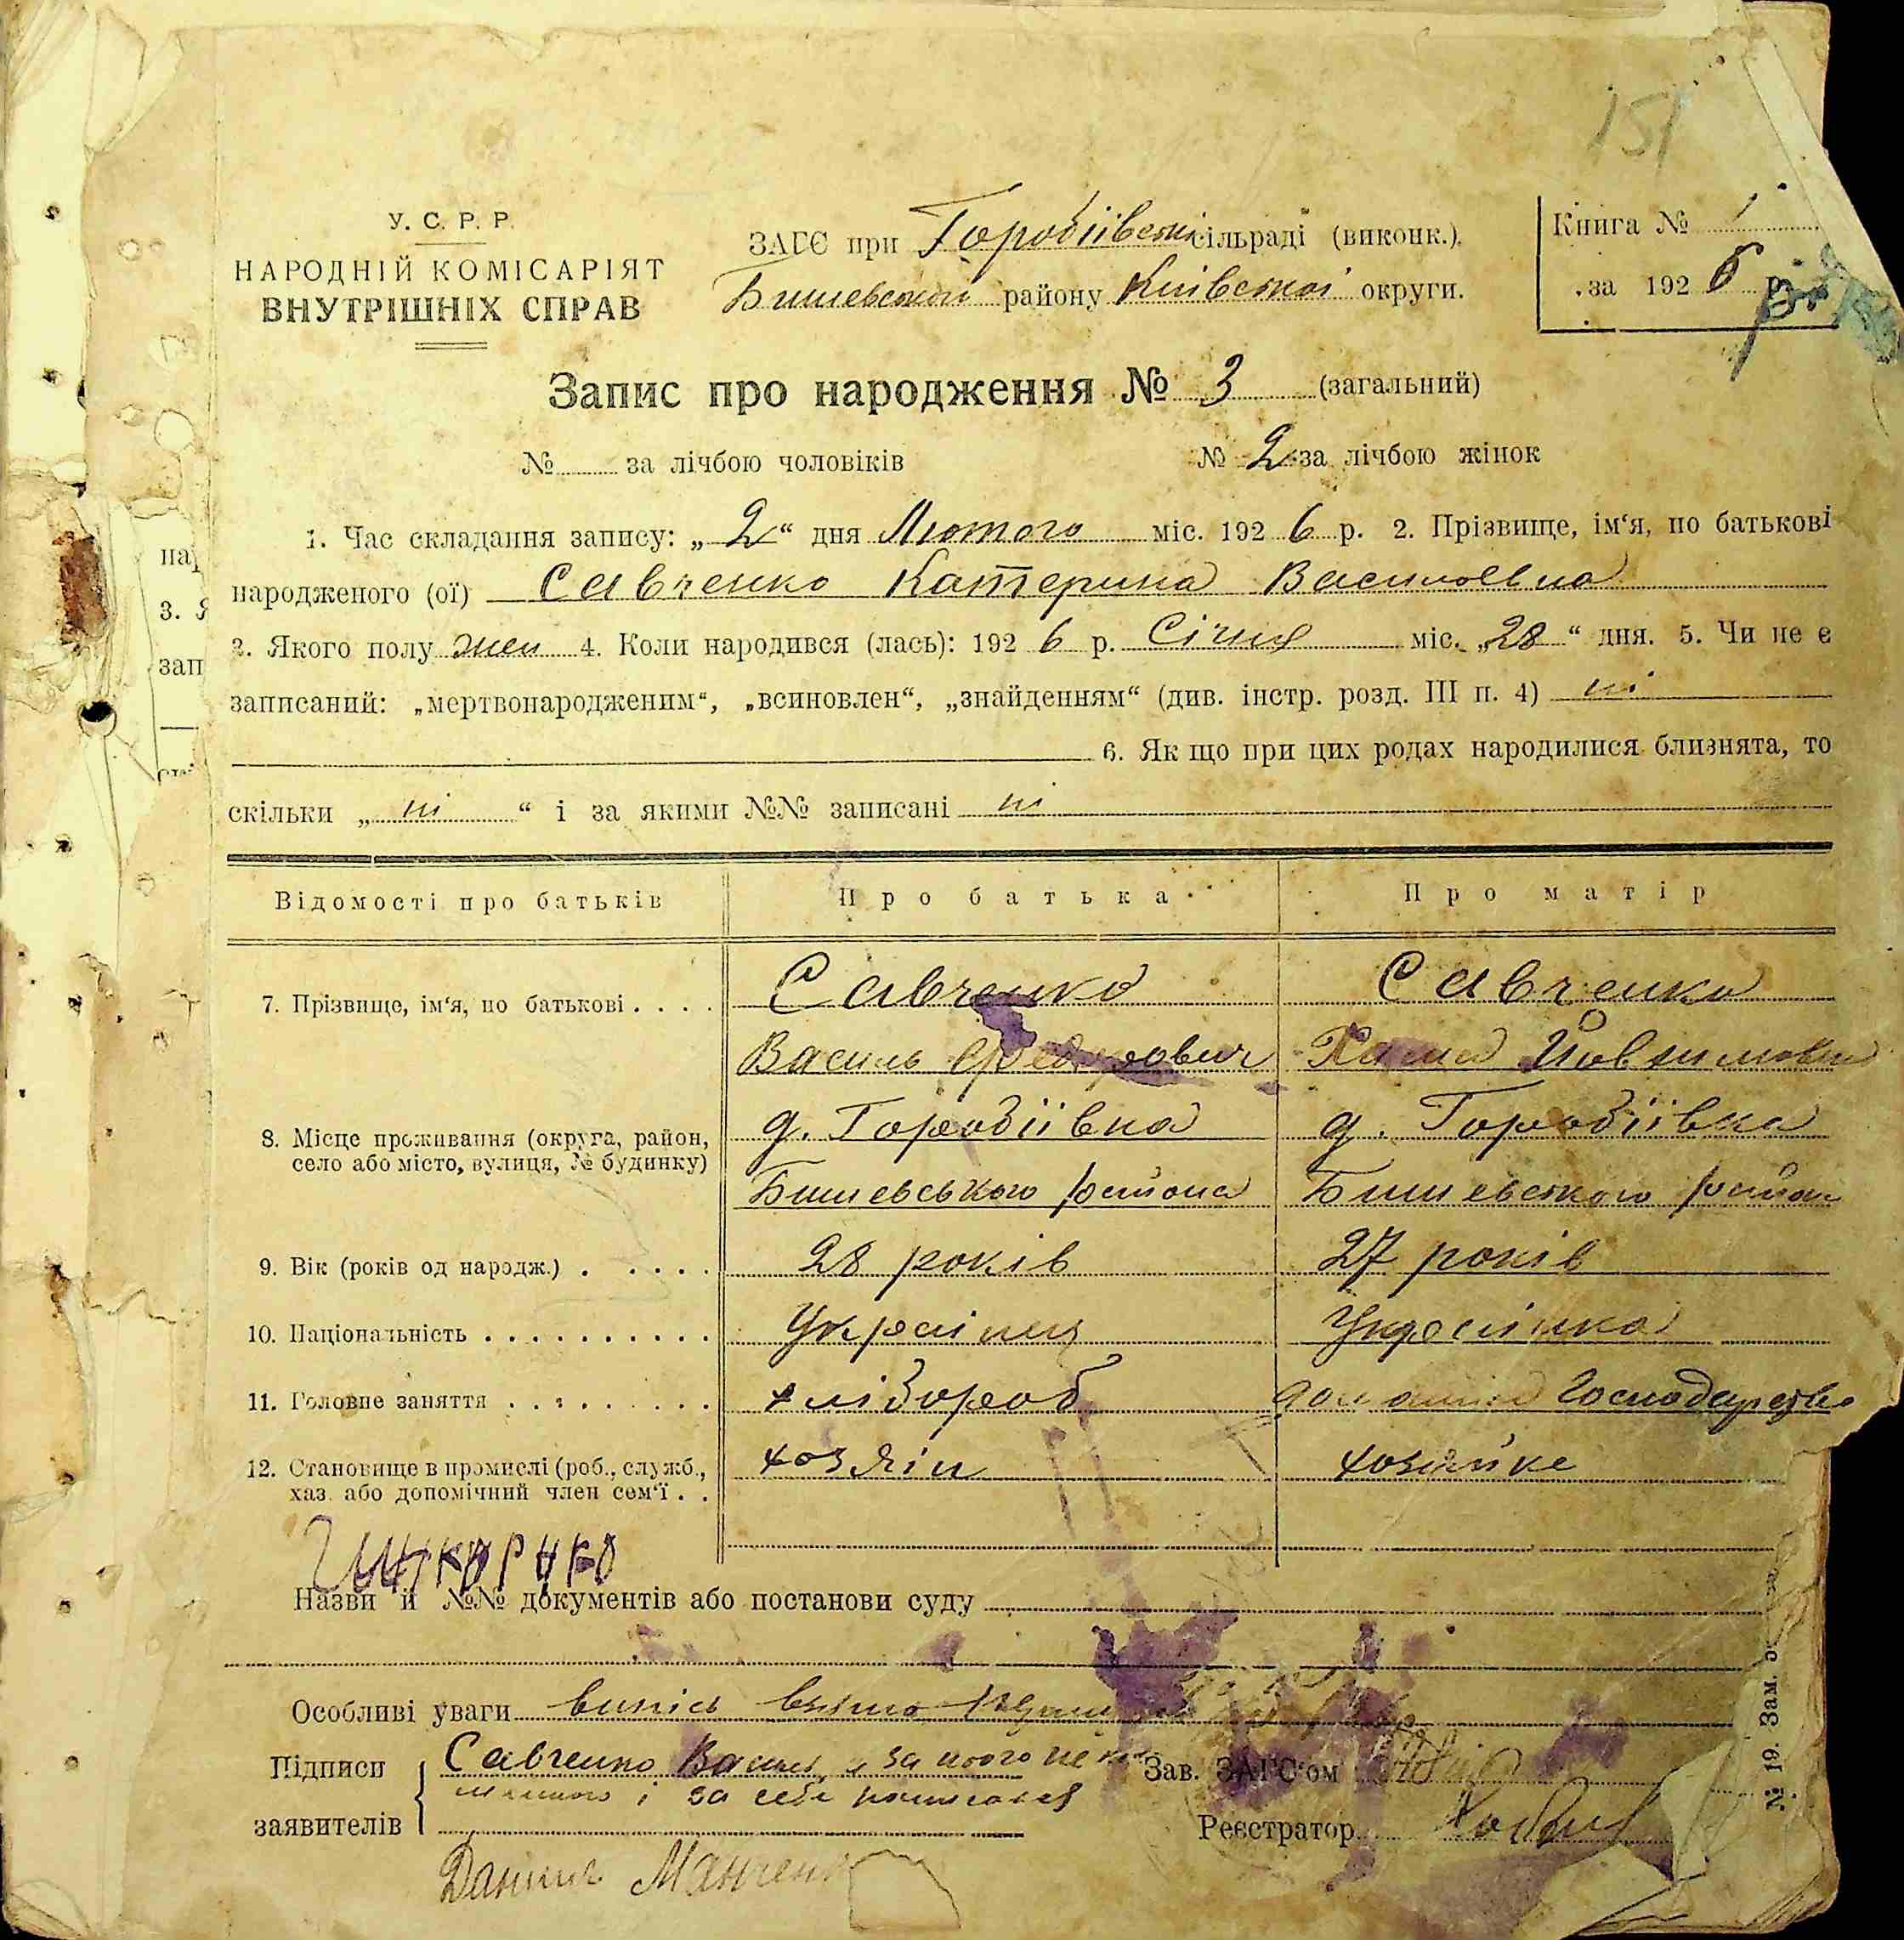 151
У. С. Р. Р.
НАРОДНІЙ КОМІСАРІЯТ
ВНУТРІШНІХ СПРАВ
ЗАГС при Городіївській сільраді (виконк.).
Бишевської району Київської округи.
Книга № 1
за 1926 р.
Запис про народження № 3 (загальний)
№ за лічбою чоловіків № 2 за лічбою жінок
1. Час складання запису: „2“ дня Лютого міс. 1926 р. 2. Прізвище, ім‘я, по батькові
народженого (ої) Савченко Катерина Василовна
3. Якого полу жен 4. Коли народився (лась): 1926 р. Січня міс. „28“ дня. 5. Чи не є
записаний: „мертвонародженим“, „всиновлен“, „знайденням“ (див. інстр. розд. III п. 4) ні
6. Як що при цих родах народилися близнята, то
скільки „ні“ і за якими №№ записані ні
Відомості про батьків Про батька Про матір
7. Прізвище, ім‘я, по батькові . . . . Савченко Савченко
Василь Федорович
8. Місце проживання (округа, район, д. Городіївка д. Городіївка
село або місто, вулиця, № будинку)
Бишевського района Бишевского район
9. Вік (років од народж.) . . . . . 28 років 27 років
10. Національність . . . . . . . . . . Українець Українка
11. Головне заняття . . . . . . . . . хлібороб домашнє Господарство
12. Становище в промислі (роб., служб., хозяін хозяйке
хаз. або допомічний член сем‘ї . .
Назви й №№ документів або постанови суду
Особливі уваги випісь взята
Підписи Савченко Василь, а за його не
заявителів і за себе росписався
Зав. ЗАГС‘ом
Реєстратор
Данило
№ 19. Зам.